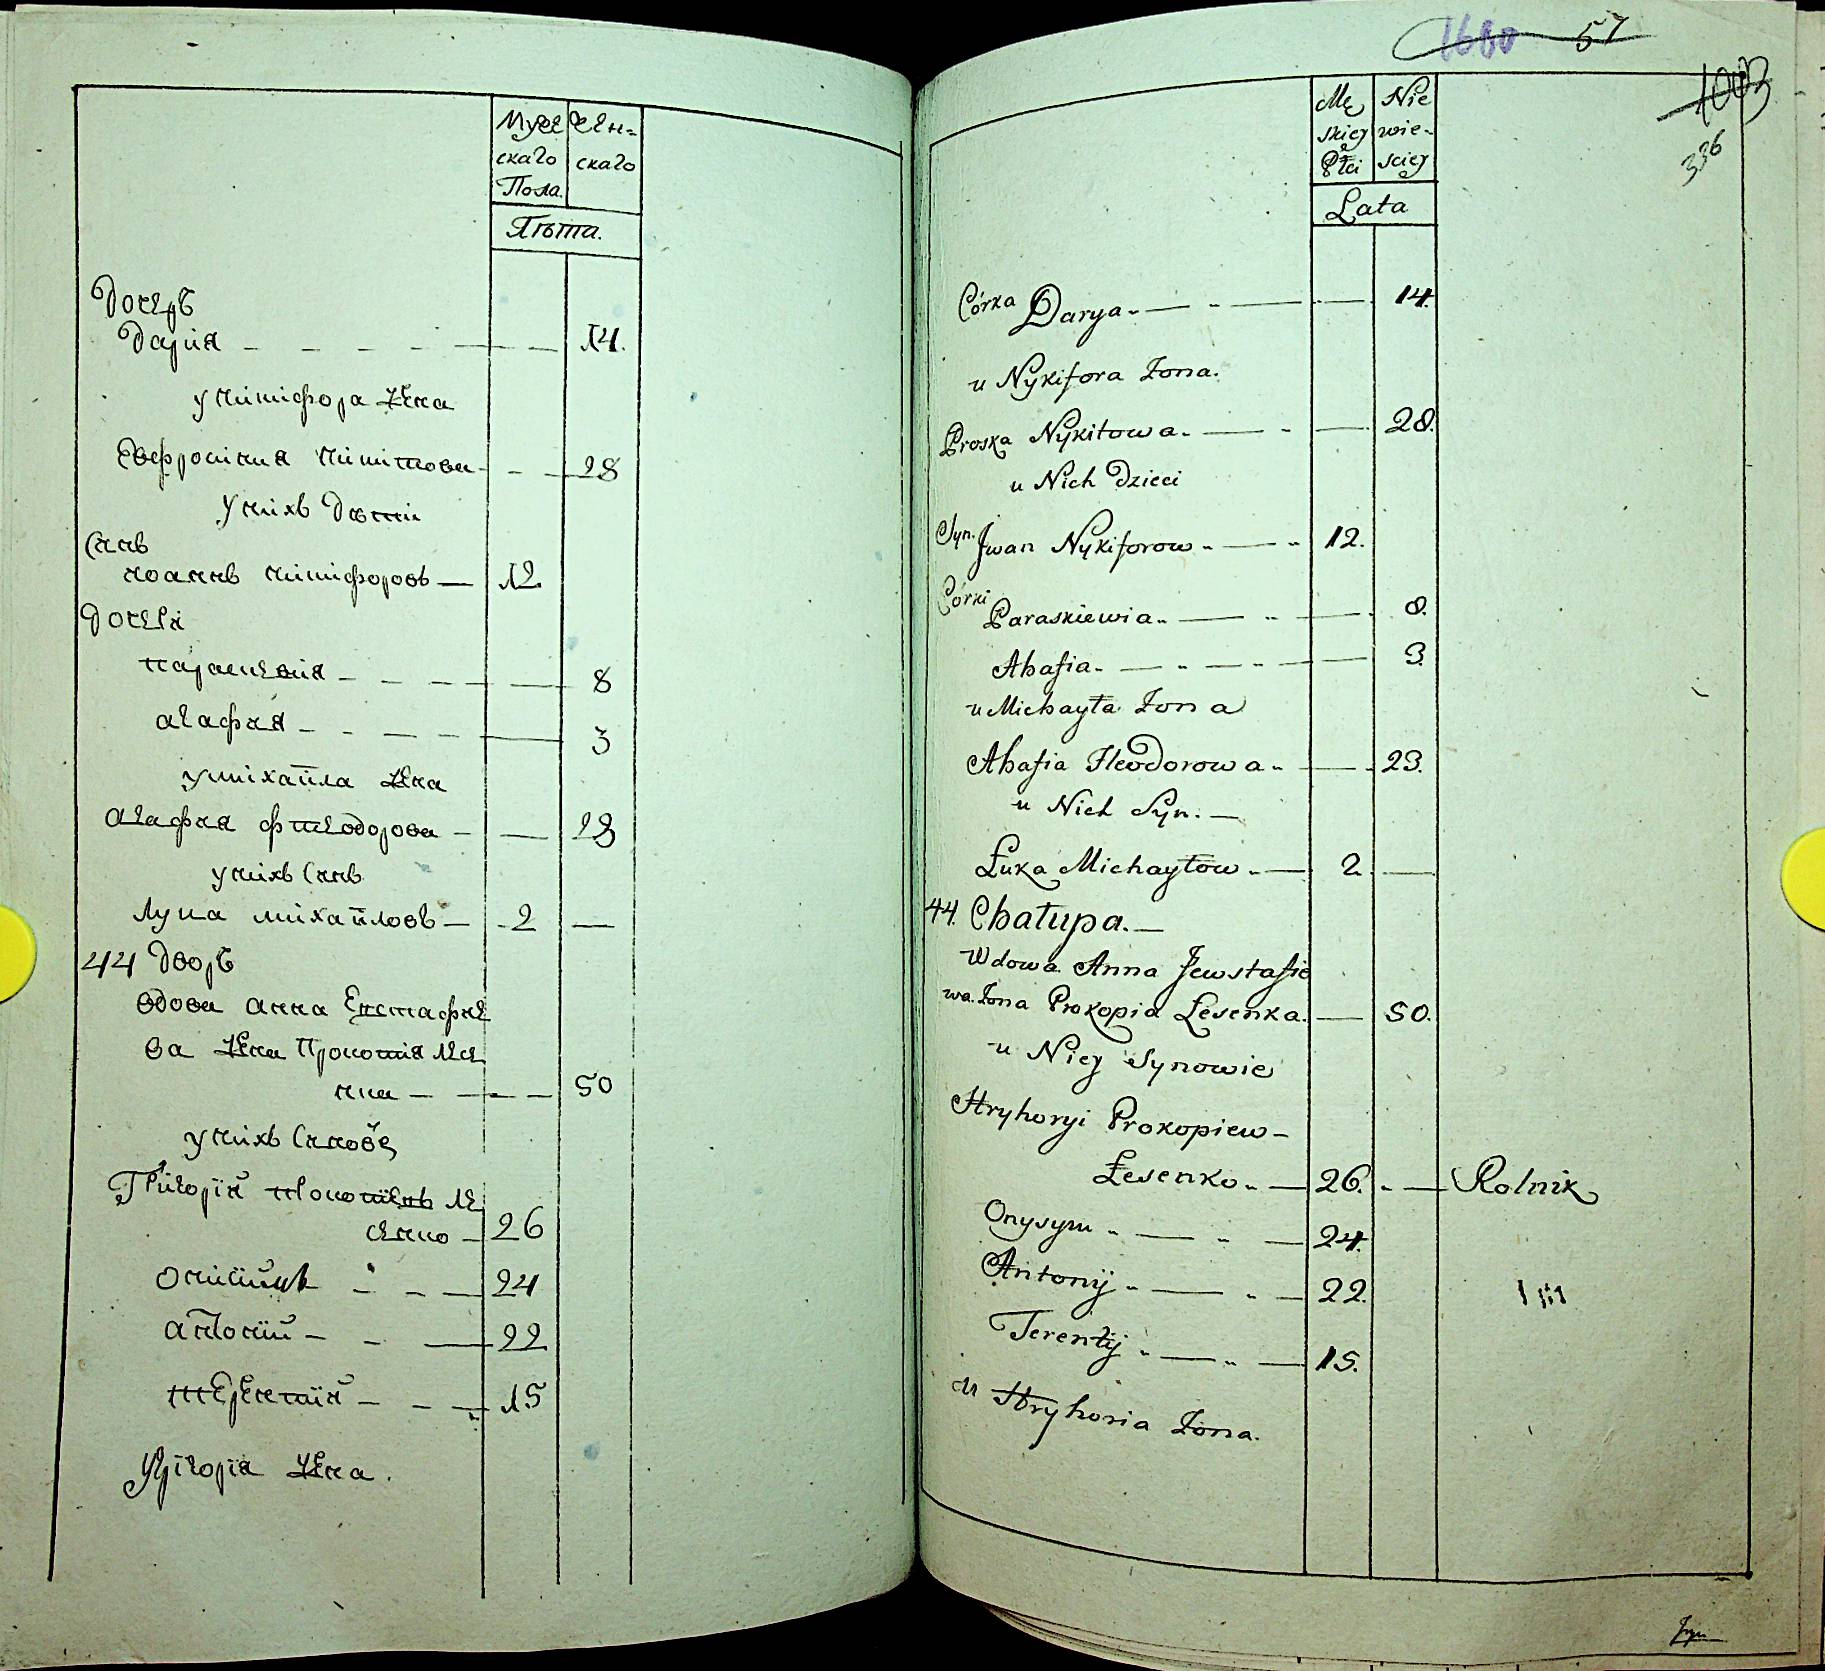 Мужес
скаго
Пола.
Жен=
скаго
Лѣта.
Дочерь
Дарія — 14.
у Никифора жена
Евфросиния Никитова — 28
у нихъ Дѣти
Сынъ
Иоаннъ Никифоровъ — 12
Дочери
Параскевия — 8
Агафия — 3
у Михайла жена
Агафия Фтеодорова — 23
у нихъ Сынъ
Лука Михайловъ — 2 —
44 Дворъ
Вдова Анна Евстафие
ва жена Прокопия Лесе
нка — 50
у нихъ Сынове
Григорій Прокопиевъ Ле
сенко — 26
Онисимъ — 24
Антоній — 22
Терентій — 15
у Григорія жена.
1680 57
1003
336
Mę
skiey
Płci
Nie
wie-
sciey
Lata
Córka Darya — 14.
u Nykifora Żona.
Proska Nykitowa. — 28.
u Nich Dzieci
Syn. Jwan Nykiforow — 12.
Córki
Paraskiewia — 8.
Ahafia — 3.
u Michayła Żona
Ahafia Fteodorowa — 23.
u Nich Syn. —
Łuka Michayłow — 2. —
44. Chałupa. —
Wdowa Anna Jewstafie
wa. Żona Prokopia Łesenka. — 50.
u Niey Synowie
Hryhoryi Prokopiew —
Łesenko — 26. — Rolnik
Onysym — 24.
Antonij — 22.
Terentij — 15.
u Hryhoria Żona.